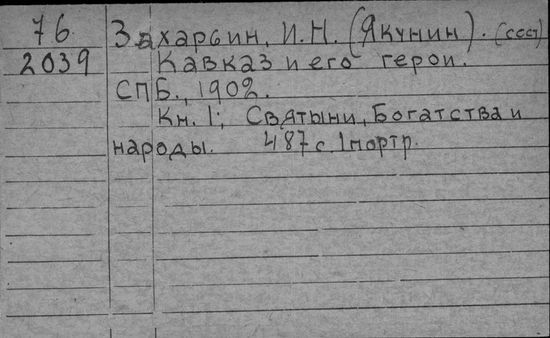 76
2039
Захарьин, И.Н. (Якунин). (сост)
Кавказ и его герои.
СПБ., 1902.
Кн. 1; Святыни, Богатства и
народы. 487 с. 1 портр.